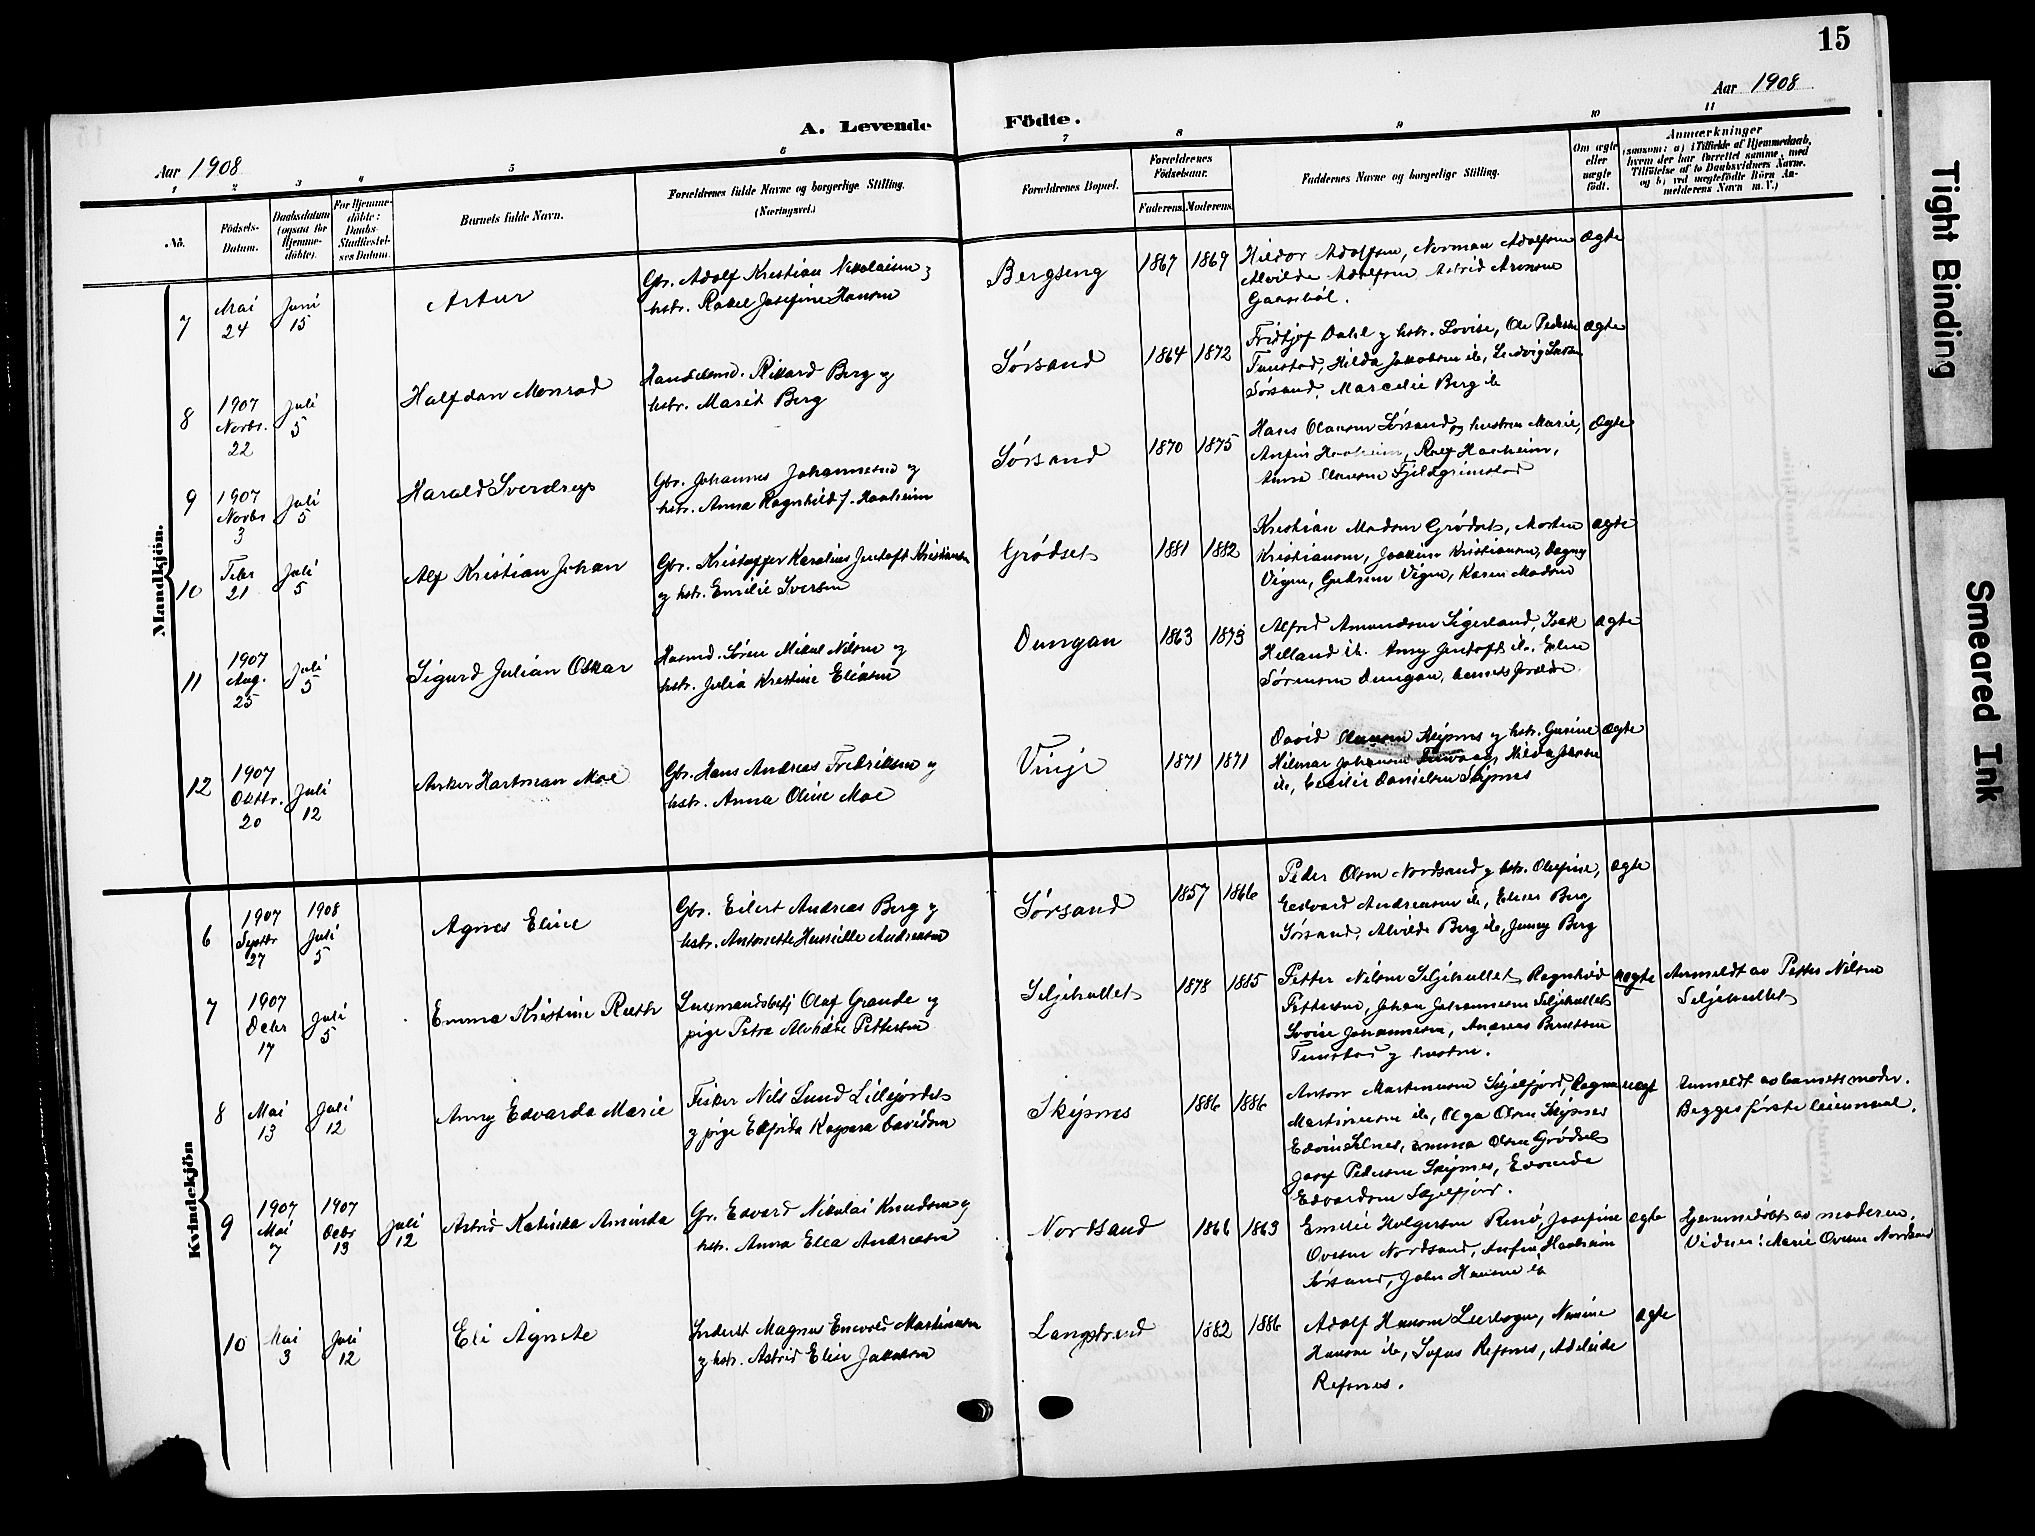 15
Aar 1908
A. Levende Födte.
Aar 1908
1 2 3 4 5 6 7 8 9 10 11
No.
Födsels-Datum.
Daabsdatum (ogsaa for Hjemme-döbte).
For Hjemme-döbte: Daabs-Stadfæstel-ses Datum.
Barnets fulde Navn.
Forældrenes fulde Navne og borgerlige Stilling.
(Næringsvei.)
Forældrenes Bopæl.
Forældrenes Födselsaar.
Faderens. Moderens.
Faddernes Navne og borgerlige Stilling.
Om ægte eller uægte födt.
Anmærkninger
(saasom: a) i Tilfælde af Hjemmedaab,
hvem der har forrettet samme, med
Tilføielse af to Daabsvidners Navne.
og b) ved uægtefödte Börn An-
melderens Navn m. V.)
Mandkjön.
7 Mai 24 Juni 15 Artur
Gbr. Adolf Kristian Nikolaisen og
hstr. Rakel Josefine Hansen
Bergseng 1867 1869
Hildor Adolfsen, Norman Adolfsen
Alvilde Adolfsen Astrid Aronsen
ægte
8 1907 Novbr. 22 Juli 5 Halfdan Monrad
Handelsmd. Rikard Berg og
hstr. Marit Berg
Sørsand 1864 1872
Fridtjof Dahl og hstr. Lovise, Ole Pedersen
Tunstad, Hilda Jakobsen ib, Ludvig
Sørsand, Marcelie Berg ib
ægte
9 1907 Novbr 3 Juli 5 Harald Sverdrup
Gbr. Johannes Johannesen og
hstr. Anna Ragnhild J. Haaheim
Sørsand 1870 1875
Hans Olausen Sørsand og hustru Marie,
Anfin Haaheim, Rolf Haaheim,
Anna Olausen Fjeldgrimstad
ægte
10 Febr 21 Juli 5 Alf Kristian Johan
Gbr. Kristoffer Karelius Jentoft Kristiansen
og hstr. Emilie Iversen
Grødset 1881 1882
Kristian Madsen Grødset, Morten
Kristiansen, Joakim Kristiansen, Dagny
Vigen, Gudrun Vigen, Karen Madsen
ægte
11 1907 Aug. 25 Juli 5 Sigurd Julian Oskar
Husmd. Søren Mikal Nilsen og
hstr. Julia Kristine Eliasen
Dungan 1863 1873
Alfred Amundsen Sigerland, Isak
Helland ib. Anny Jentoft ib. Elen
Sørensen Dungan, barnets forældre.
ægte
12 1907 Oktbr. 20 Juli 12 Anker Hartman Moe
Gbr. Hans Andreas Fredriksen og
hstr. Anna Oline Moe
Vinje 1871 1871
David Olausen Skipnes og hstr. Gurine
Hilmar Johansen Hilda Jensen
ib, Cecilie Danielsen Skipnes
ægte
Kvindekjön
6 1907 Septbr 27 1908 Juli 5 Agnes Eline
Gbr. Eilert Andreas Berg og
hstr. Antonette Andreasen
Sørsand 1857 1866
Peder Olsen Nordsand og hstr. Olufine,
Edvard Andreasen ib, Elise Berg
Sørsand, Alvilde Berg ib, Jenny Berg
ægte
7 1907 Decbr 17 Juli 5 Emma Kristine Ruth
Lensmandsbetj Olaf Grande og
pige Petra Alvhilde Pettersen
Seljehullet 1878 1885
Petter Nilsen Seljehullet Ragnhild
Pettersen, Johan Johannesen Seljehullet
Lovine Johannesen, Andreas Berntsen
Tunstad og hustru.
uægte
Anmeldt av Petter Nilsen
Seljehullet
8 Mai 13 Juli 12 Anny Edvarda Marie
Fisker Nils Lund Lillejordet
og pige Elfrida Kaspara Davidsen
Skipnes 1886 1886
Anton Martinusen Skjelfjord, Ragna
Martinusen ib, Olga Olsen Skipnes
Edvin Selnes, Emma Olsen Grødset
Josef Pedersen Skipnes, Edvarda
Edvardsen Skjelfjord.
uægt
Anmeldt av barnets moder.
Begges første leiermaal.
9 1907 Mai 7 1907 Decbr 13 Juli 12 Astrid Katinka Aminda
Gr. Edvard Nikolai Knudsen og
hstr. Anna Elea Andreasen
Nordsand 1866 1863
Emelie Holgersen Renø, Josefine
Ovesen Nordsand, Anfin Haaheim
Sørsand, John Hansen ib
ægte
Hjemmedøbt av moderen.
Vidner: Marie Ovesen Nordsand
10 Mai 3 Juli 12 Eli Agnete
Inderst Magnus Enevold Martinusen
og hstr. Astrid Elise Jakobsen
Langstrand 1882 1886
Adolf Hansen Leerbogen, Nanine
Hansen ib, Sofus Refsnes, Adeleide
Refsnes.
ægte
Tight Binding
Smeared Ink